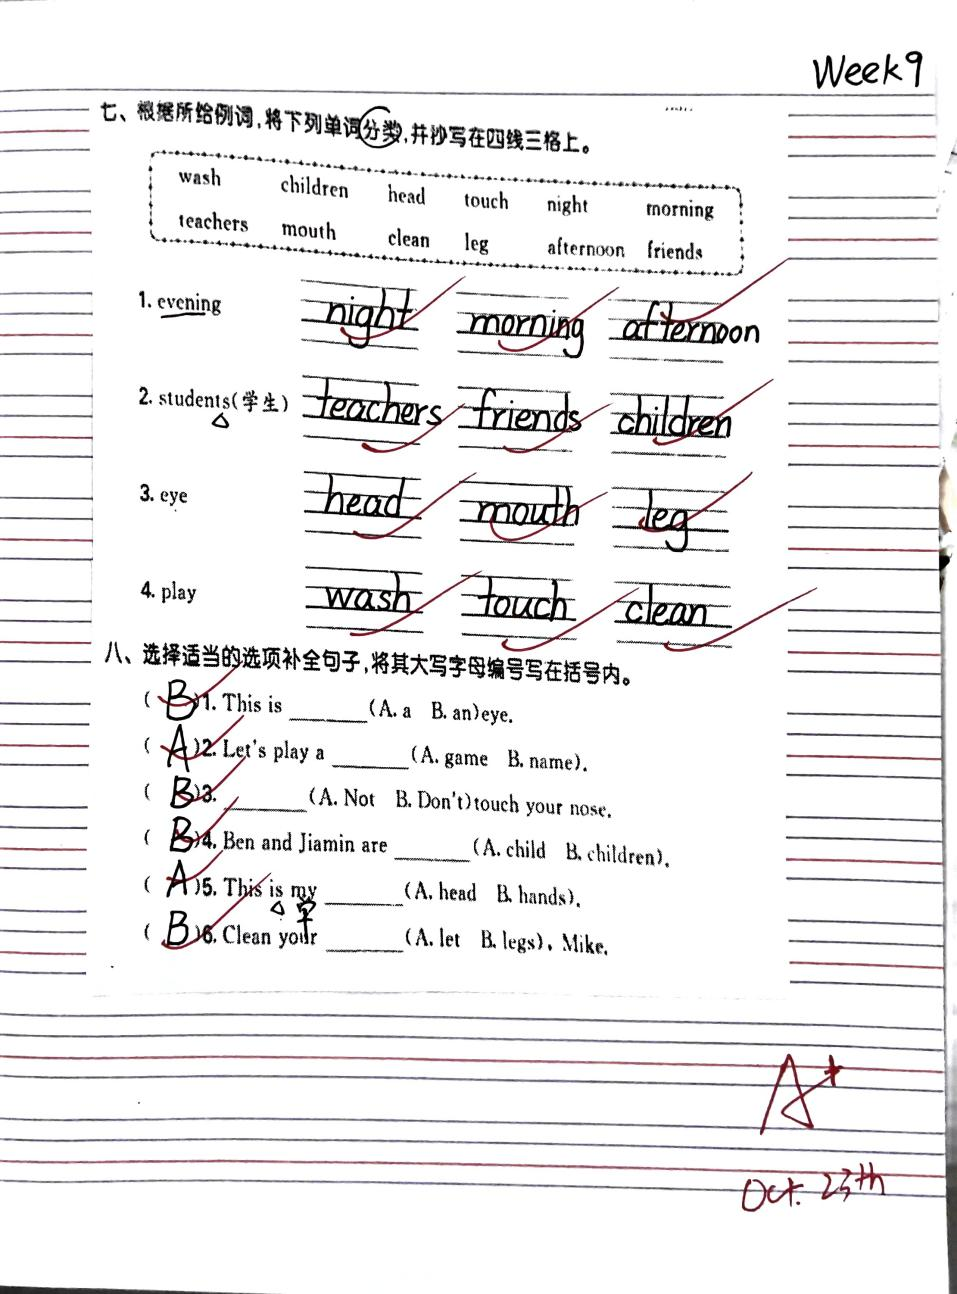 Week9
七、根据所给例词,将下列单词分类,并抄写在四线三格上。
wash children head touch night morning
teachers mouth clean leg afternoon friends
1. evening night morning afternoon
2. students(学生) teachers friends children
3. eye head mouth leg
4. play wash touch clean
八、选择适当的选项补全句子,将其大写字母编号写在括号内。
( B )1. This is ______(A. a B. an)eye.
( A )2. Let's play a ______(A. game B. name).
( B )3. ______(A. Not B. Don't)touch your nose.
( B )4. Ben and Jiamin are ______(A. child B. children).
( A )5. This is my ______(A. head B. hands).
( B )6. Clean your ______(A. let B. legs), Mike.
A+
Oct. 23th